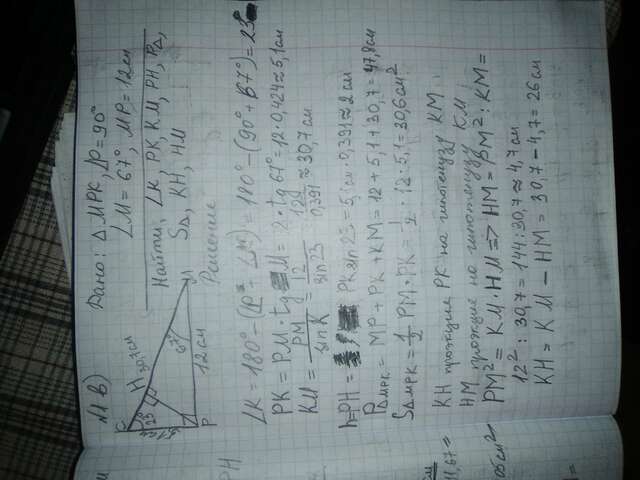 N1 в)
Дано: △MPK, ∠P=90°
∠M = 67°, MP = 12см
Найти: ∠K, PK, KM, PH, P△,
S△, KH, HM
K
H
30,7см
23
5,1см
67°
M
P
12см
Решение
∠K = 180° - (∠P + ∠M) = 180° - (90° + 67°) = 23°
PK = PM · tg M = 12 · tg 67° = 12 · 0,424 ≈ 5,1см
KM = PM / sin K = 12 / sin 23 = 12 / 0,391 ≈ 30,7 см
h=PH = PK sin 23 = 5,1см · 0,391 ≈ 2 см
P△MPK = MP + PK + KM = 12 + 5,1 + 30,7 = 47,8см
S△MPK = 1/2 PM · PK = 1/2 · 12 · 5,1 = 30,6см²
KH проекция PK на гипотенузу KM
HM проекция на гипотенузу KM
PM² = KM · HM => HM = PM² : KM =
12² : 30,7 = 144 : 30,7 ≈ 4,7 см
KH = KM - HM = 30,7 - 4,7 = 26 см
PH
11,67 =
см²